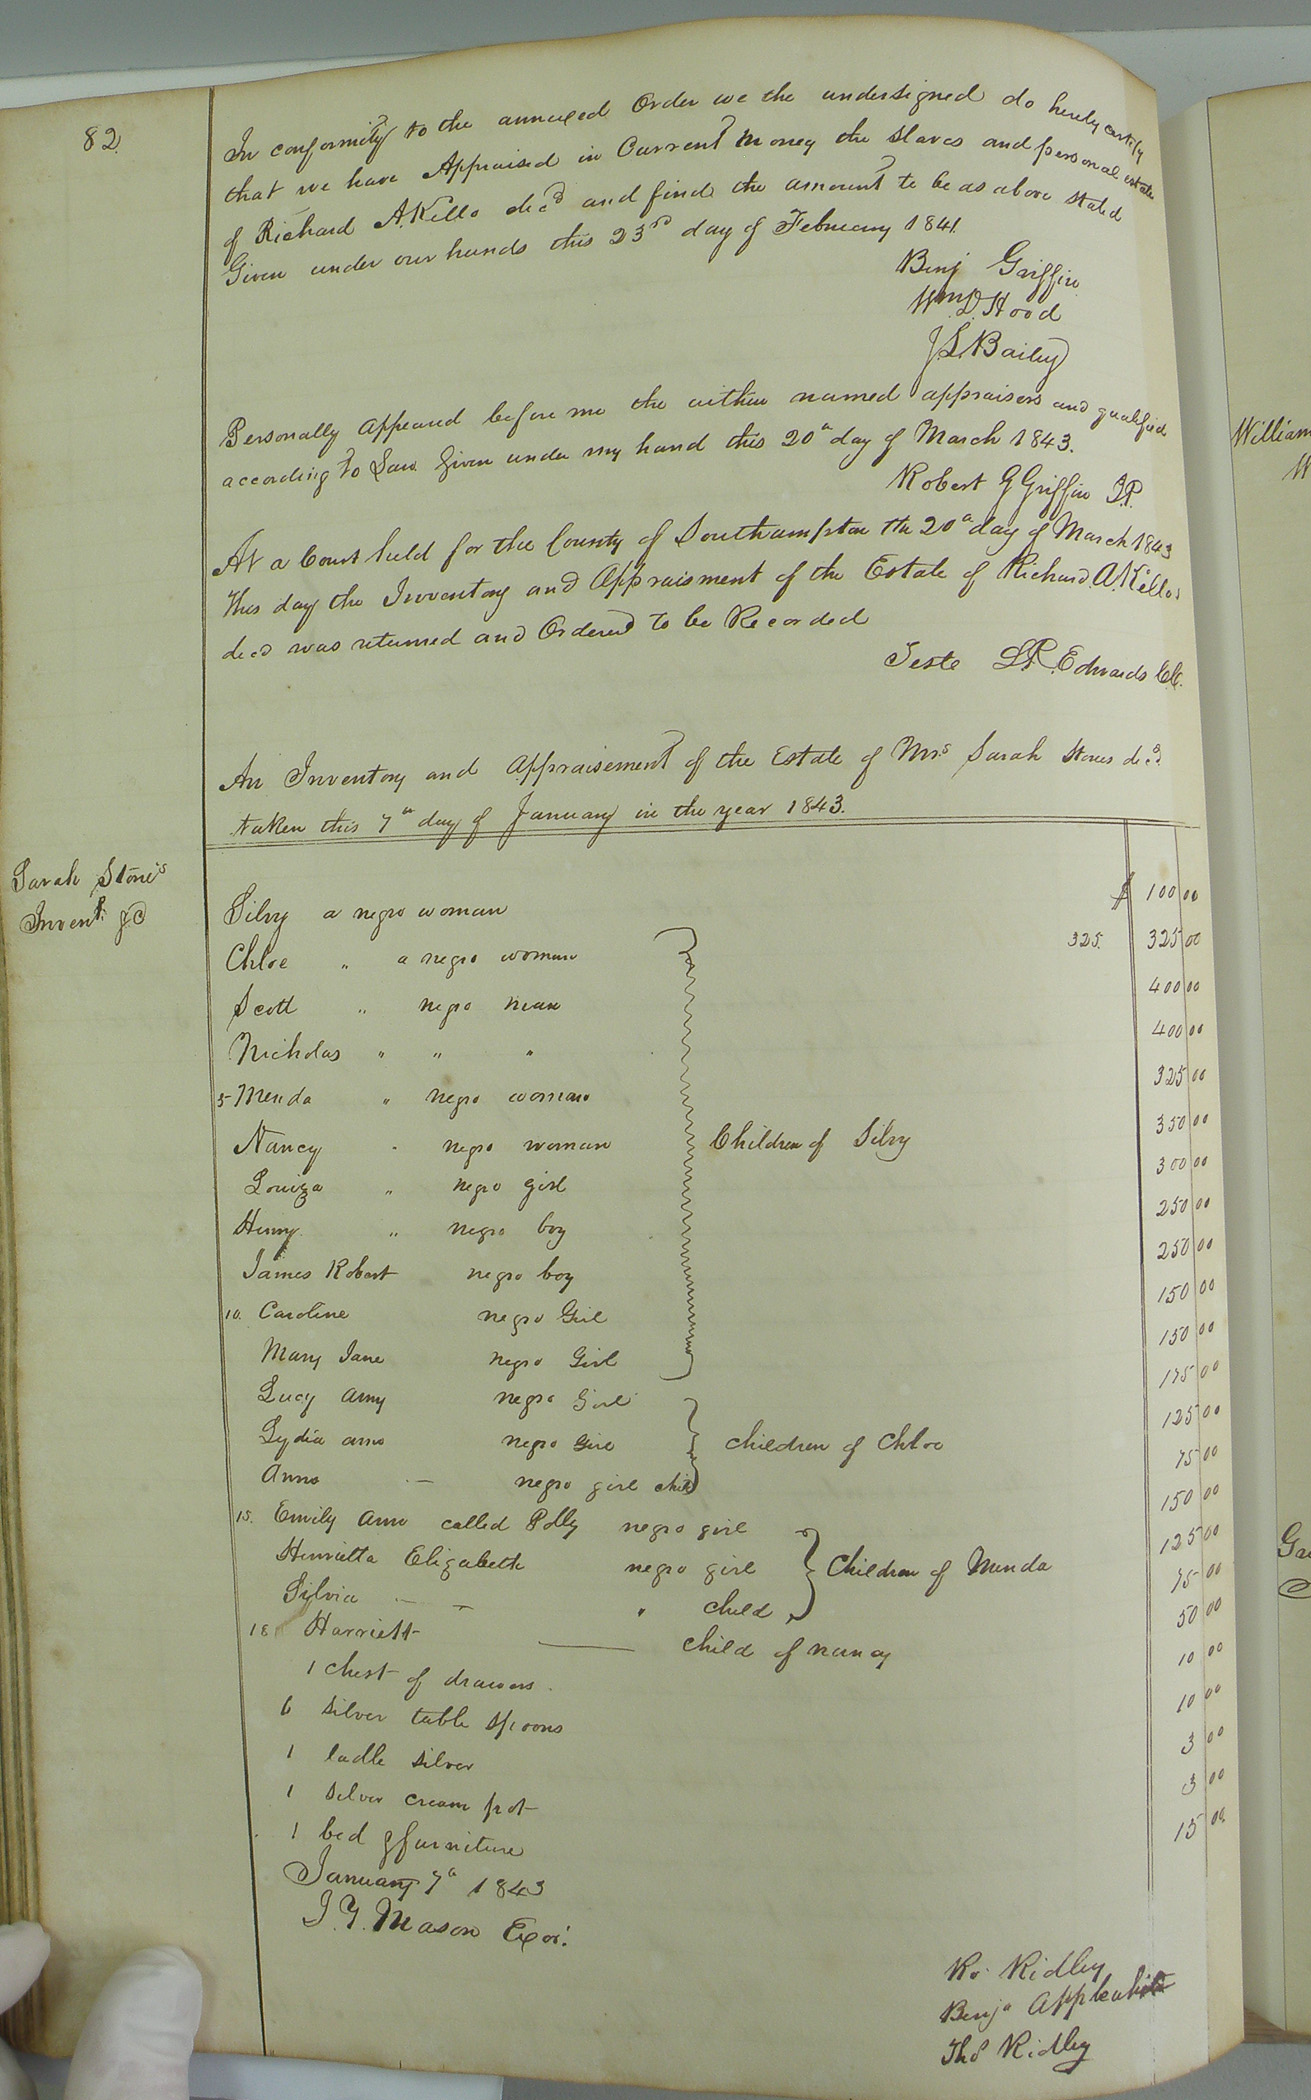 82.
In conformity to the annexed Order we the undersigned do hereby certify
that we have Appraised in Current Money the slaves and personal estate
of Richard A. Kello decd and find the amount to be as above stated
Given under our hands this 23rd day of February 1841.
Benj Griffin
Wm D Hood
J. L. Bailey
Personally appeared before me the within named appraisers and qualified
according to Law Given under my hand this 20th day of March 1843.
Robert G Griffin J.P.
At a Court held for the County of Southampton the 20th day of March 1843
This day the Inventory and Appraisment of the Estate of Richard A. Kello
decd was returned and Ordered to be Recorded
Teste L.R. Edwards Clk.
An Inventory and Appraisement of the Estate of Mrs Sarah Stones decd
taken this 7th day of January in the year 1843.
Sarah Stone's
Invent. &c
Silvy a negro woman $ 100 00
Chloe " a negro woman 325. 325 00
Scott " negro man 400 00
Nicholas " " " 400 00
5 Menda " negro woman 325 00
Nancy " negro woman 350 00
Children of Silvy
Louiza " negro girl 300 00
Henry " negro boy 250 00
James Robert negro boy 250 00
10. Caroline negro Girl 150 00
Mary Jane negro Girl 150 00
Lucy Amy negro Girl 175 00
Lydia ann negro Girl 125 00
children of Chloe
Anna — negro girl child 75 00
15. Emily Ann called Polly negro girl 150 00
Henrietta Elizabeth negro girl 125 00
Children of Menda
Silvia — — " child " 75 00
18 Harriett — child of nancy 50 00
1 chest of drawers 10 00
6 silver table spoons 10 00
1 ladle silver 3 00
1 silver cream pot 3 00
1 bed & furniture 15 00
January 7th 1843
J. Y. Mason Exor.
Ro. Ridley
Benja Applewhite
Thos Ridley
William
W
Gr